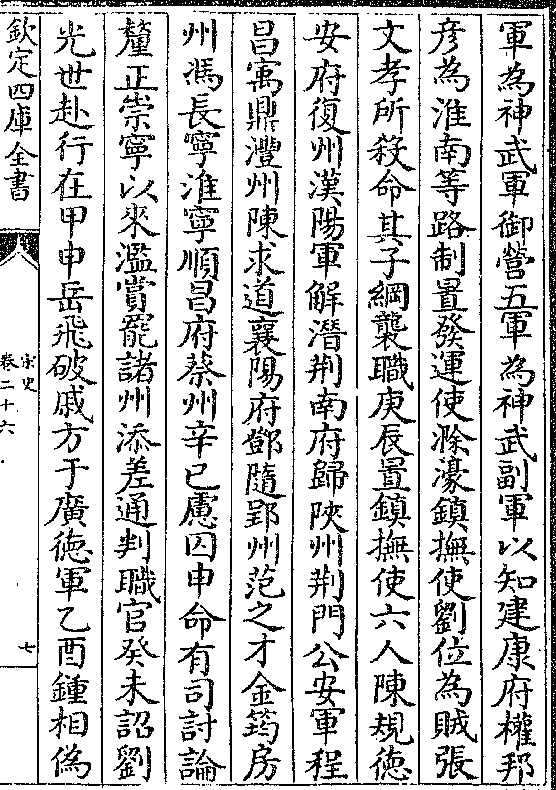 軍為神武軍御營五軍為神武副軍以知建康府權邦
彦為淮南等路制置發運使滁濠鎮撫使劉位為賊張
文孝所殺命其子綱襲職庚辰置鎮撫使六人陳規徳
安府復州漢陽軍解潛荆南府歸陜州荆門公安軍程
昌㝢鼎澧州陳求道襄陽府鄧隨郢州范之才金筠房
州馮長寧淮寧順昌府蔡州辛巳慮囚申命有司討論
釐正崇寧以來濫賞罷諸州添差通判職官癸未詔劉
光世赴行在甲申岳飛破戚方于廣徳軍乙酉鍾相偽
欽定四庫全書
宋史
卷二十六
七